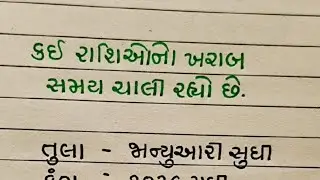 કઈ રાશિઓનો ખરાબ
સમય ચાલી રહ્યો છે.
તુલા - જાન્યુઆરી સુધી